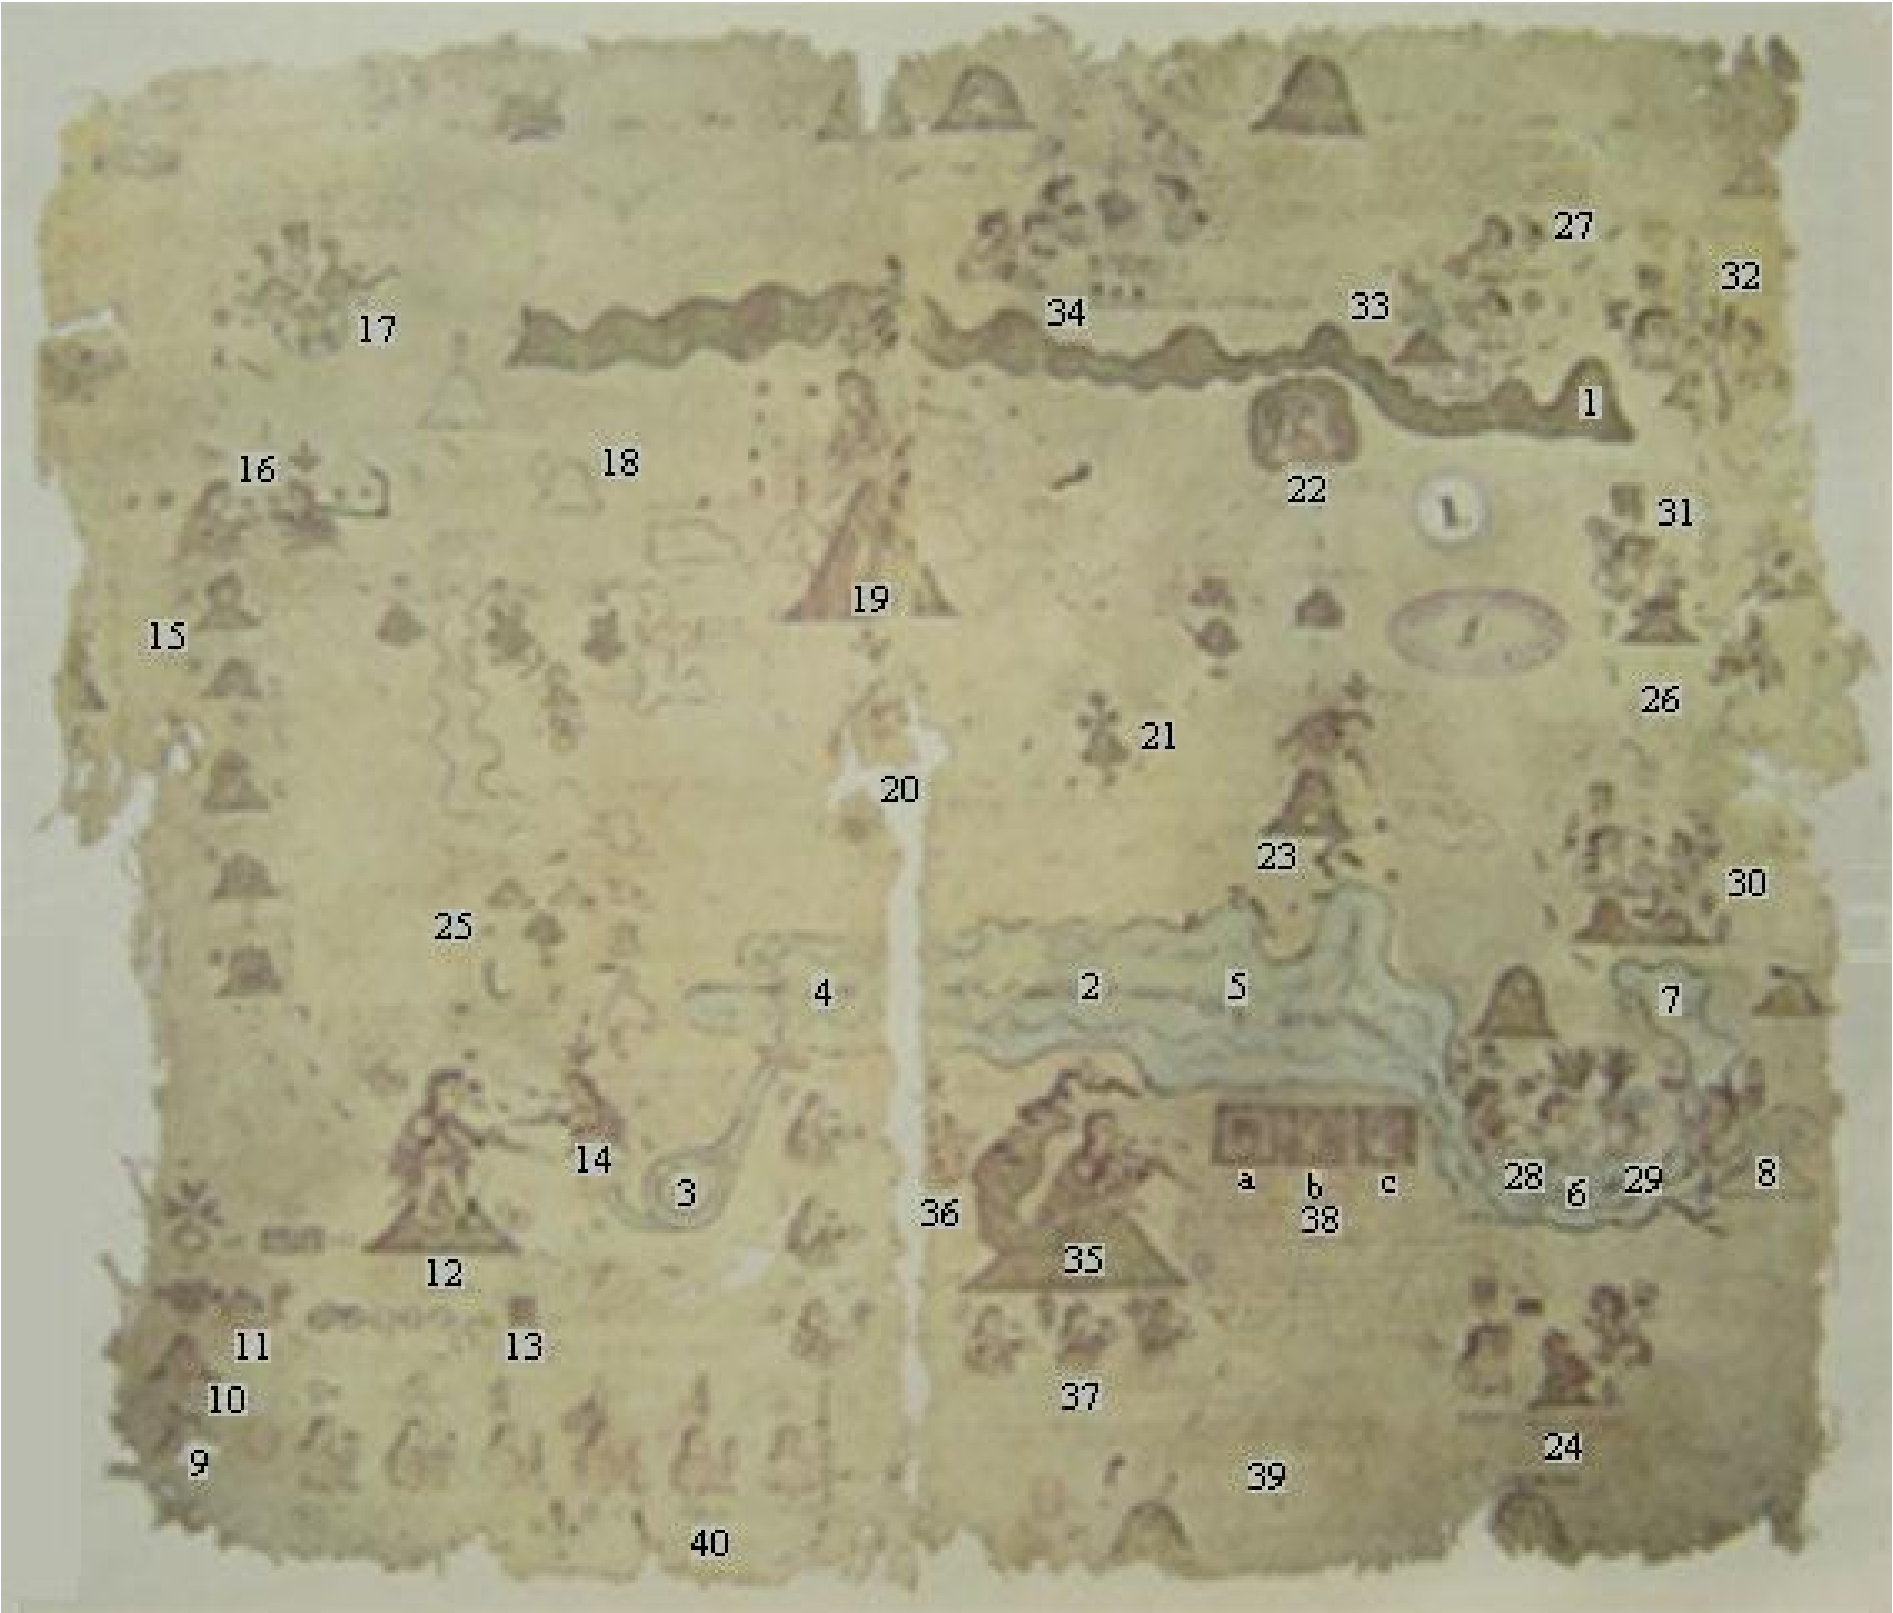 27
32
17
34
33
1
16
18
22
31
19
15
26
21
20
23
30
25
4
2
5
7
14
3
a
b
c
28
6
29
8
36
38
12
35
11
13
10
37
9
24
39
40